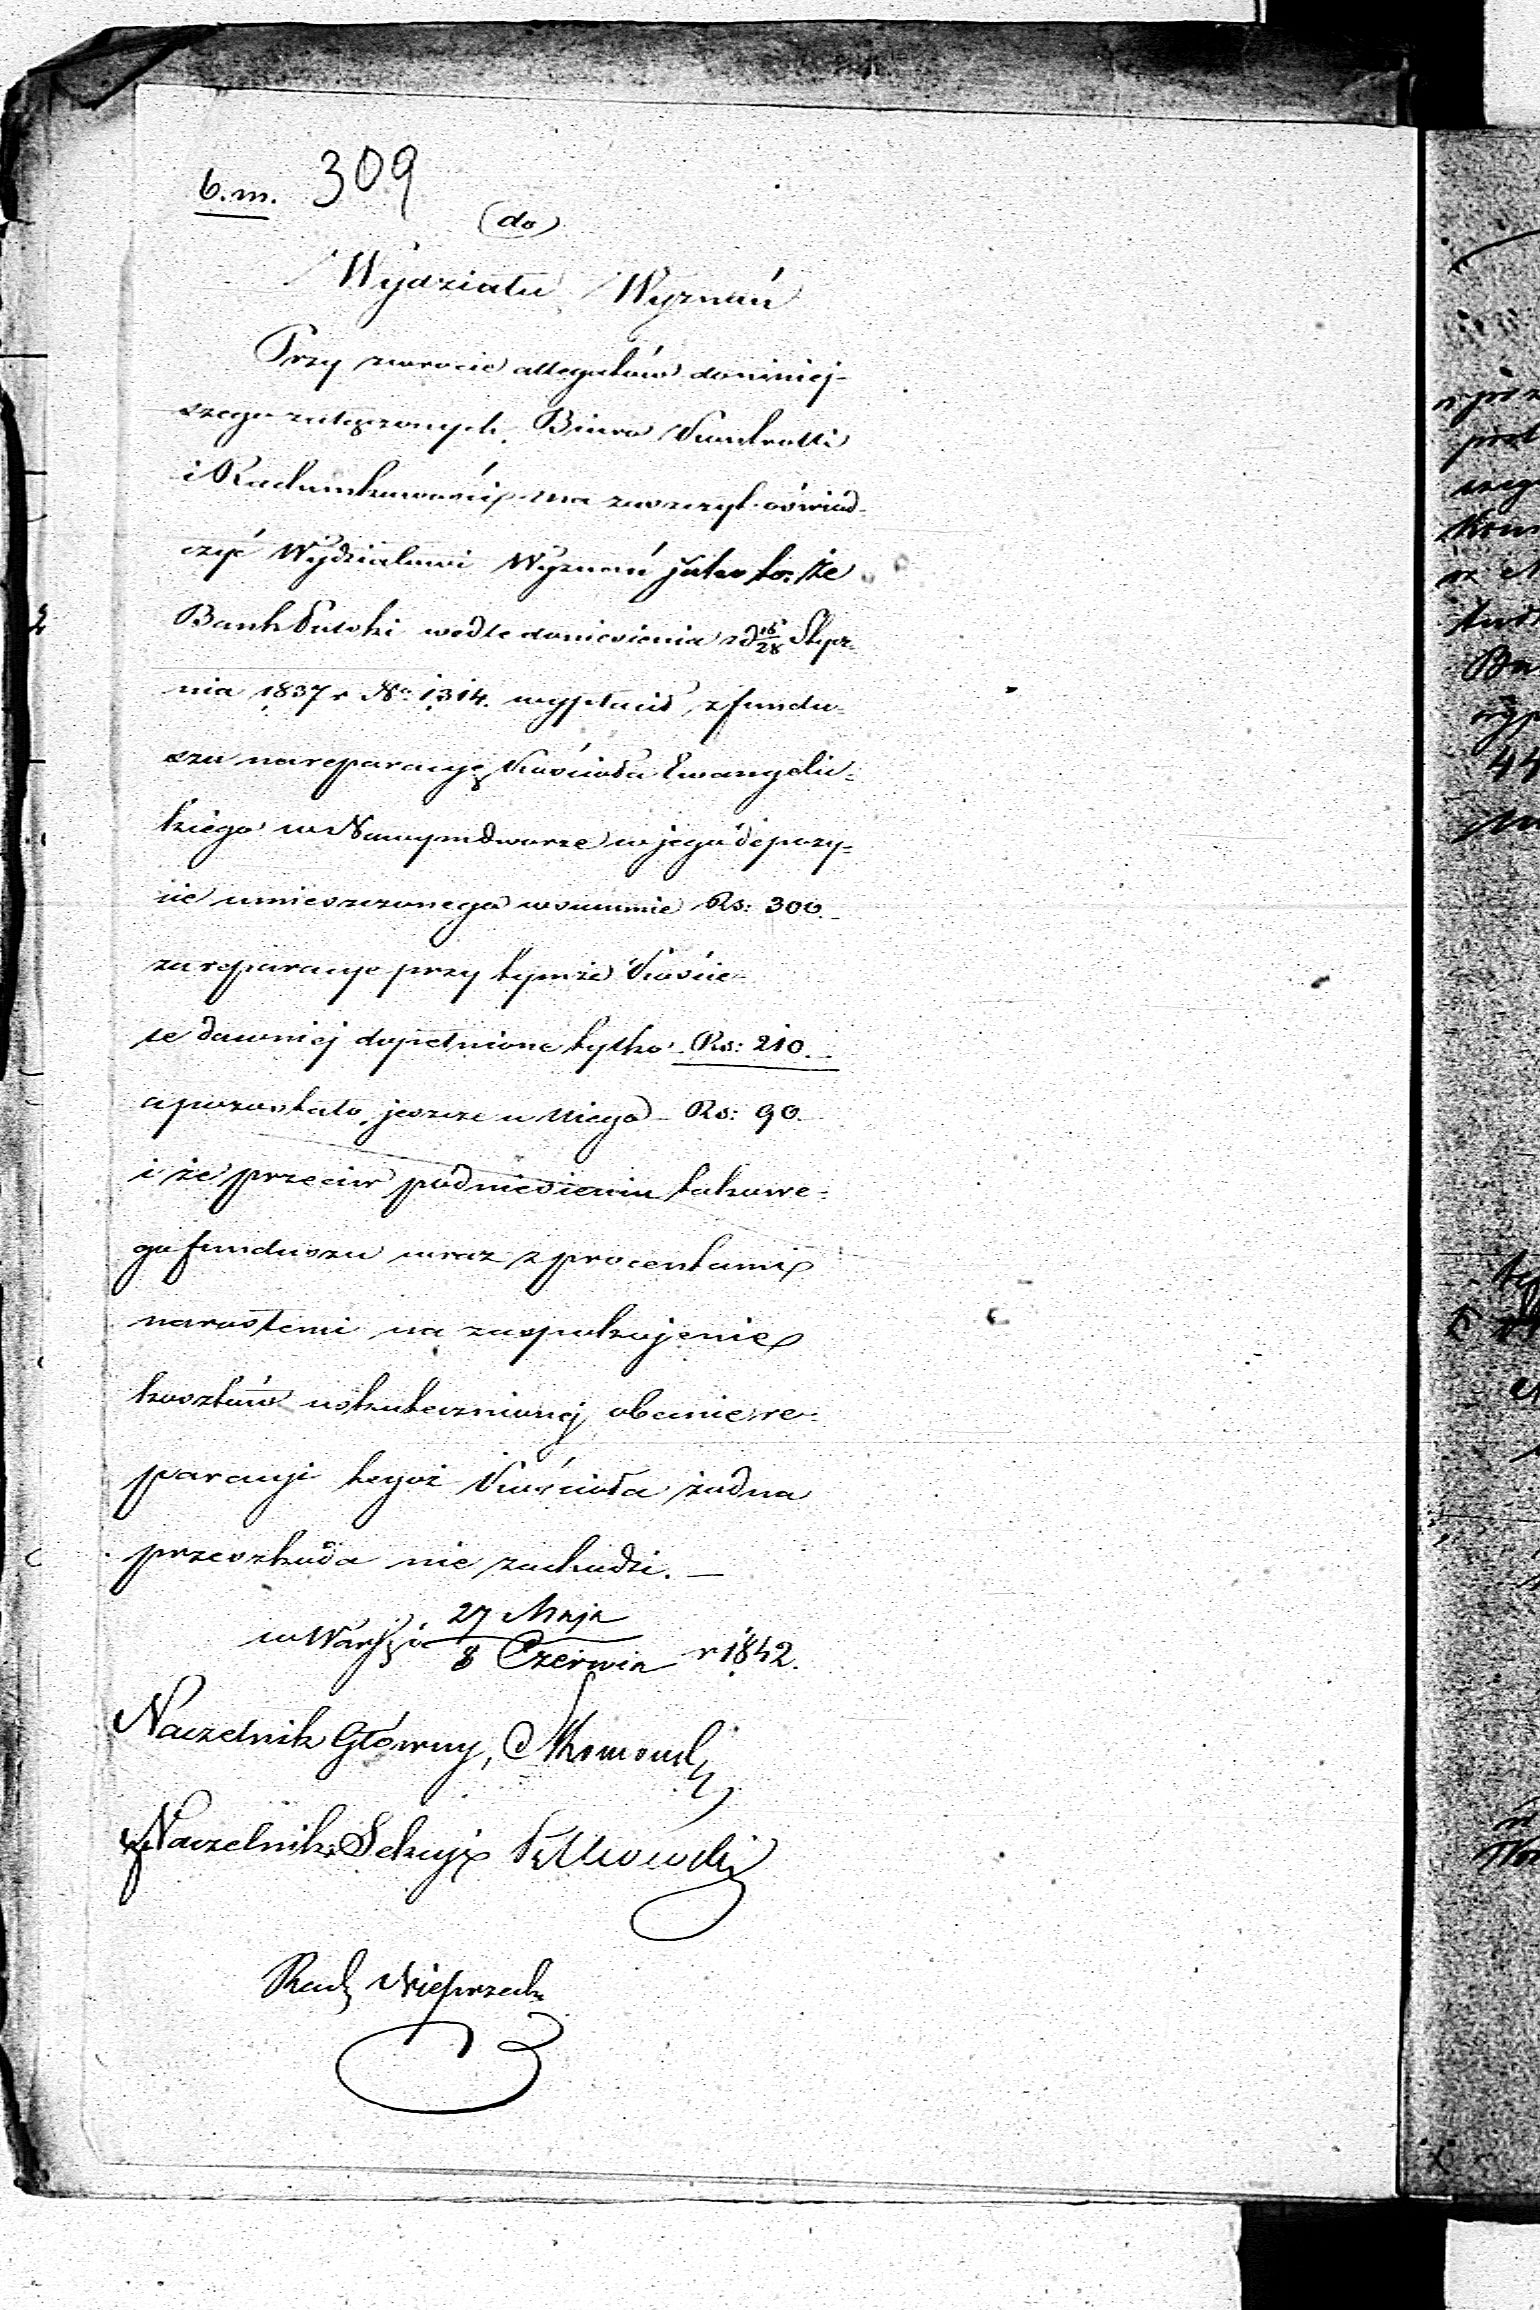 b.m. 309
(do)
Wydziału Wyznań
Przy zwrocie allegatów doniniej-
szego załączonych, Biuro Kontrolli
i Rachunkowości ma zaszczyt oświad-
czyć Wydziałowi Wyznań jako to: że
Bank Polski wedle doniesienia z d 16/28 Stycz-
nia 1837 r No 1314. wypłacił z fundu-
szu na reparacyę Kościoła Ewangelic-
kiego w Nowymdworze w jego depozy-
cie umieszczonego w summie Rs: 300.
za reparacye przy tymże Koście-
le dawniej dopełnione tylko Rs: 210.
a pozostało jeszcze u Niego Rs: 90.
i że przeciw podniesieniu takowe-
go funduszu wraz z procentami
narosłemi na zaspokojenie
kosztów uskutecznionej obecnie re-
paracyi tegoż Kościoła żadna
przeszkoda nie zachodzi. —
w Warszie 27 Maja / 8 Czerwca r 1842.
Naczelnik Główny,
Naczelnik Sekcyi
Rach